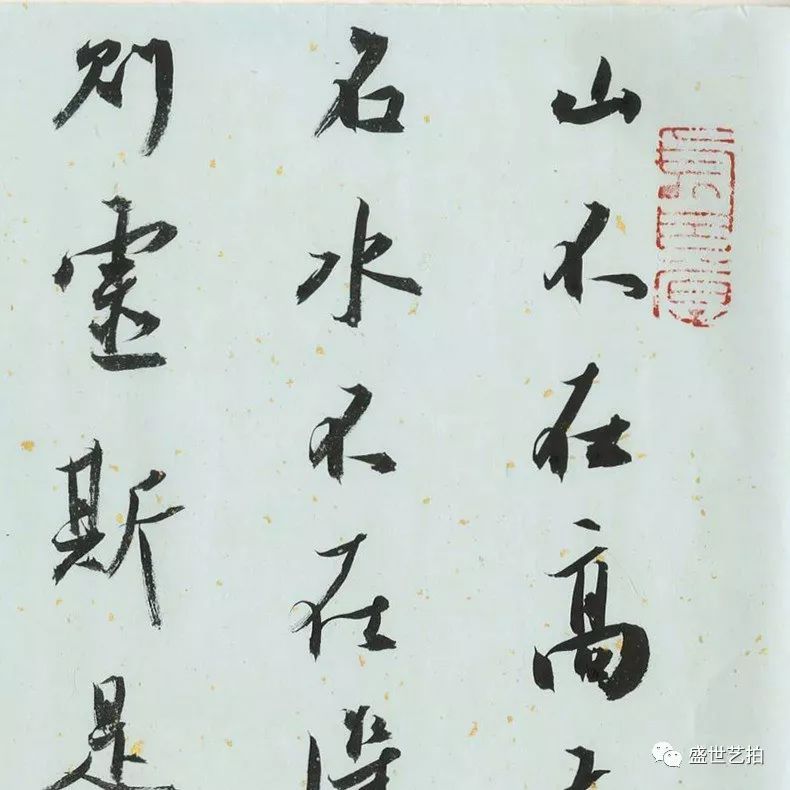 山不在高
名水不在深
则灵斯是
盛世艺拍